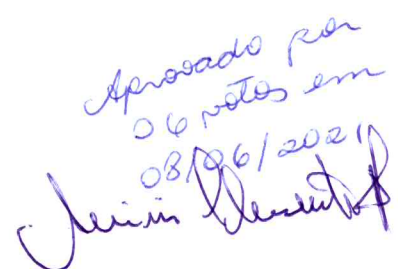 Aprovado por
06 votos em
08/06/2021